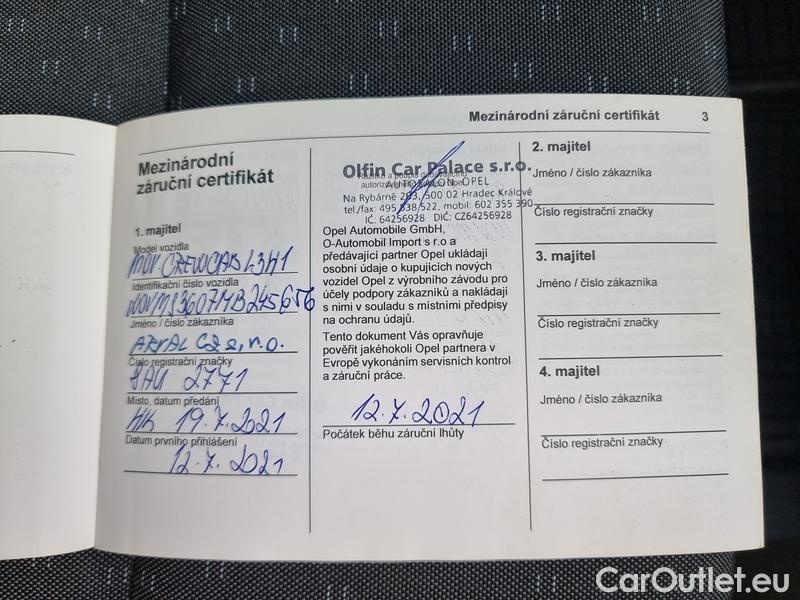 Mezinárodní záruční certifikát 3
Mezinárodní
záruční certifikát
1. majitel
Model vozidla
MOV CREWCAB L3H1
Identifikační číslo vozidla
Jméno / číslo zákazníka
ARVAL CZ s.r.o.
Číslo registrační značky
2771
Místo, datum předání
HK 19.7.2021
Datum prvního přihlášení
12.7.2021
Olfin Car Palace s.r.o.
AUTOSALON OPEL
Na Rybárně 500 02 Hradec Králové
tel./fax: 495 538/522, mobil: 602 355 390
IČ: 64256928 DIČ: CZ64256928
Opel Automobile GmbH,
O-Automobil Import s r.o a
předávající partner Opel ukládají
osobní údaje o kupujících nových
vozidel Opel z výrobního závodu pro
účely podpory zákazníků a nakládají
s nimi v souladu s místními předpisy
na ochranu údajů.
Tento dokument Vás opravňuje
pověřit jakéhokoli Opel partnera v
Evropě vykonáním servisních kontrol
a záruční práce.
12.7.2021
Počátek běhu záruční lhůty
2. majitel
Jméno / číslo zákazníka
Číslo registrační značky
3. majitel
Jméno / číslo zákazníka
Číslo registrační značky
4. majitel
Jméno / číslo zákazníka
Číslo registrační značky
CarOutlet.eu